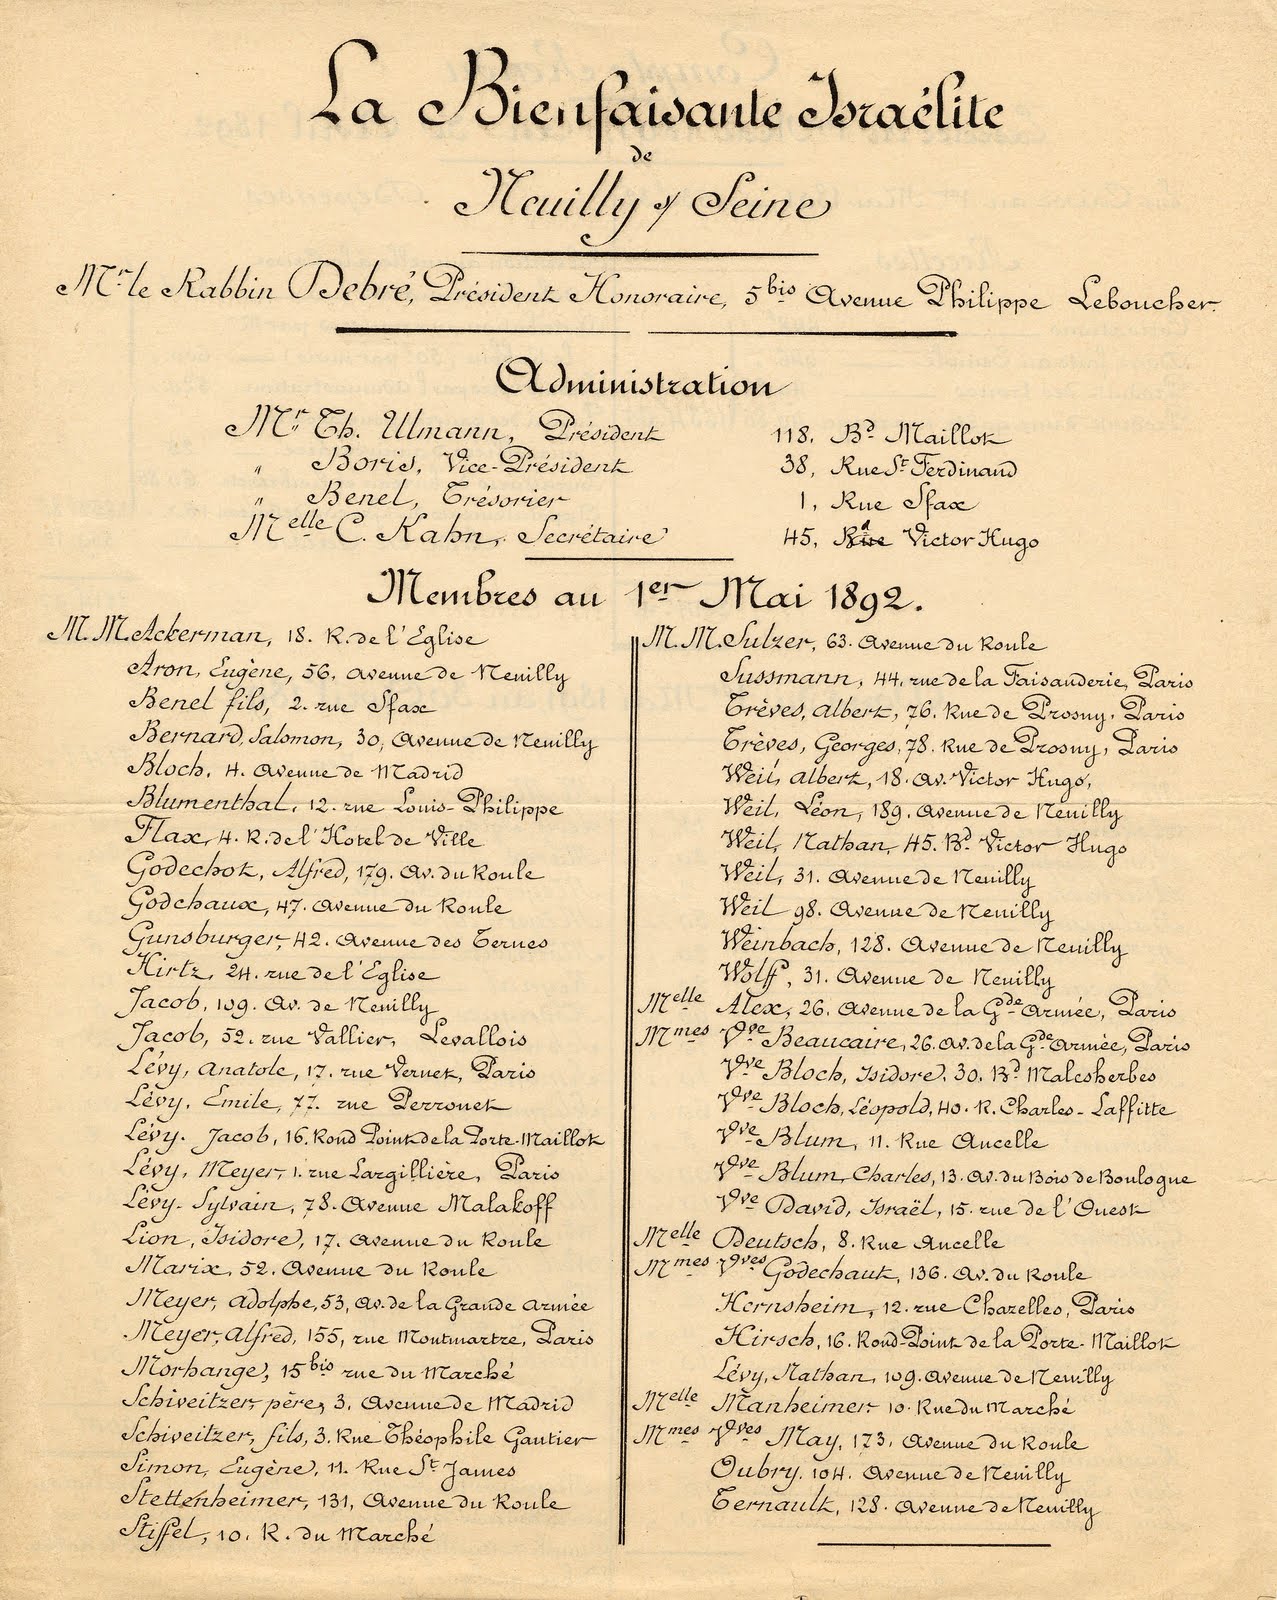 La Bienfaisante Israélite
de
Neuilly s/ Seine
Mr le Rabbin Debré, Président Honoraire, 5bis Avenue Philippe Leboucher.
Administration
Mr Th. Ulmann, Président 118, Bd Maillot
" Boris, Vice-Président 38, Rue St Ferdinand
" Benel, Trésorier 1, Rue Sfax
Melle C. Kahn, Secrétaire 45, Bd Victor Hugo
Membres au 1er Mai 1892.
M.M. Ackerman, 18. R. de l'Eglise
Aron, Eugène, 56, avenue de Neuilly
Benel fils, 2. rue Sfax
Bernard, Salomon, 30, Avenue de Neuilly
Bloch, 4. Avenue de Madrid
Blumenthal, 12. rue Louis-Philippe
Flax, 4. R. de l'Hotel de Ville
Godechot, Alfred, 179. Av. du Roule
Godchaux, 47. Avenue du Roule
Gunsburger, 42. Avenue des Ternes
Hirtz, 24. rue de l'Eglise
Jacob, 109. Av. de Neuilly
Jacob, 52. rue Vallier, Levallois
Lévy, Anatole, 17. rue Vernet, Paris
Lévy, Emile, 77. rue Perronet
Lévy. Jacob, 16. Rond Point de la Porte-Maillot
Lévy, Meyer, 1. rue Largillière, Paris
Lévy. Sylvain, 78. Avenue Malakoff
Lion, Isidore, 17. Avenue du Roule
Marix, 52. Avenue du Roule
Meyer, Adolphe, 53, Av. de la Grande Armée
Meyer, Alfred, 155, rue Montmartre, Paris
Morhange, 15bis rue du Marché
Schweitzer père, 3. Avenue de Madrid
Schweitzer, fils, 3. Rue Théophile Gautier
Simon, Eugène, 11. Rue St James
Stettenheimer, 131, Avenue du Roule
Stiffel, 10. R. du Marché
M.M. Sulzer, 63. Avenue du Roule
Sussmann, 44. rue de la Faisanderie, Paris
Trèves, Albert, 76. Rue de Prosny, Paris
Trèves, Georges, 78. Rue de Prosny, Paris
Weil, Albert, 18. Av. Victor Hugo,
Weil, Léon, 189. Avenue de Neuilly
Weil, Nathan, 45. Bd Victor Hugo
Weil, 31. Avenue de Neuilly
Weil 98. Avenue de Neuilly
Weinbach, 128. Avenue de Neuilly
Wolff, 31. Avenue de Neuilly
Melle Alex, 26. Avenue de la Gde Armée, Paris
Mmes Vve Beaucaire, 26. Av. de la Gde Armée, Paris
Vve Bloch, Isidore, 30. Bd Malesherbes
Vve Bloch, Léopold, 40. R. Charles-Laffitte
Vve Blum, 11. Rue Ancelle
Vve Blum, Charles, 13. Av. du Bois de Boulogne
Vve David, Israël, 15. rue de l'Ouest
Melle Deutsch, 8. Rue Ancelle
Mmes Vves Godechaut, 136. Av. du Roule
Hernsheim, 12. rue Chazelles, Paris
Hirsch, 16. Rond-Point de la Porte-Maillot
Lévy, Nathan, 109. Avenue de Neuilly
Melle Manheimer 10. Rue du Marché
Mmes Vves May, 173, Avenue du Roule
Oubry. 104. Avenue de Neuilly
Ternault, 128. Avenue de Neuilly